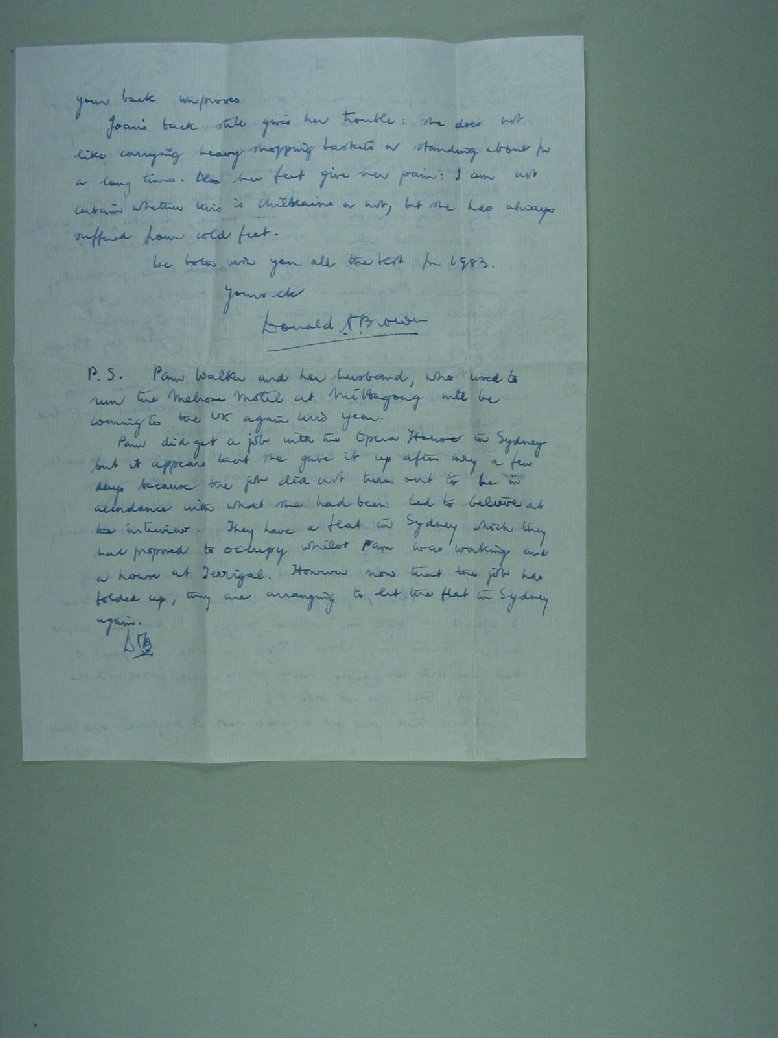 your back improves
Joan's back still gives her trouble: she does not
like carrying heavy shopping baskets or standing about for
a long time. Also her feet give her pain: I am not
certain whether this is chilblains or not, but she has always
suffered from cold feet.
We both wish you all the best for 1983.
Yours etc
Donald A Brown
P.S. Pam Walker and her husband, who used to
run the Melrose Motel at Mittagong will be
coming to the UK again this year.
Pam did get a job with the Opera House in Sydney
but it appears that she gave it up after only a few
days because the job did not turn out to be in
accordance with what she had been led to believe at
the interview. They have a flat in Sydney which they
had proposed to occupy whilst Pam was working and
a house at Terrigal. However now that the job has
folded up, they are arranging to let the flat in Sydney
again.
DAB